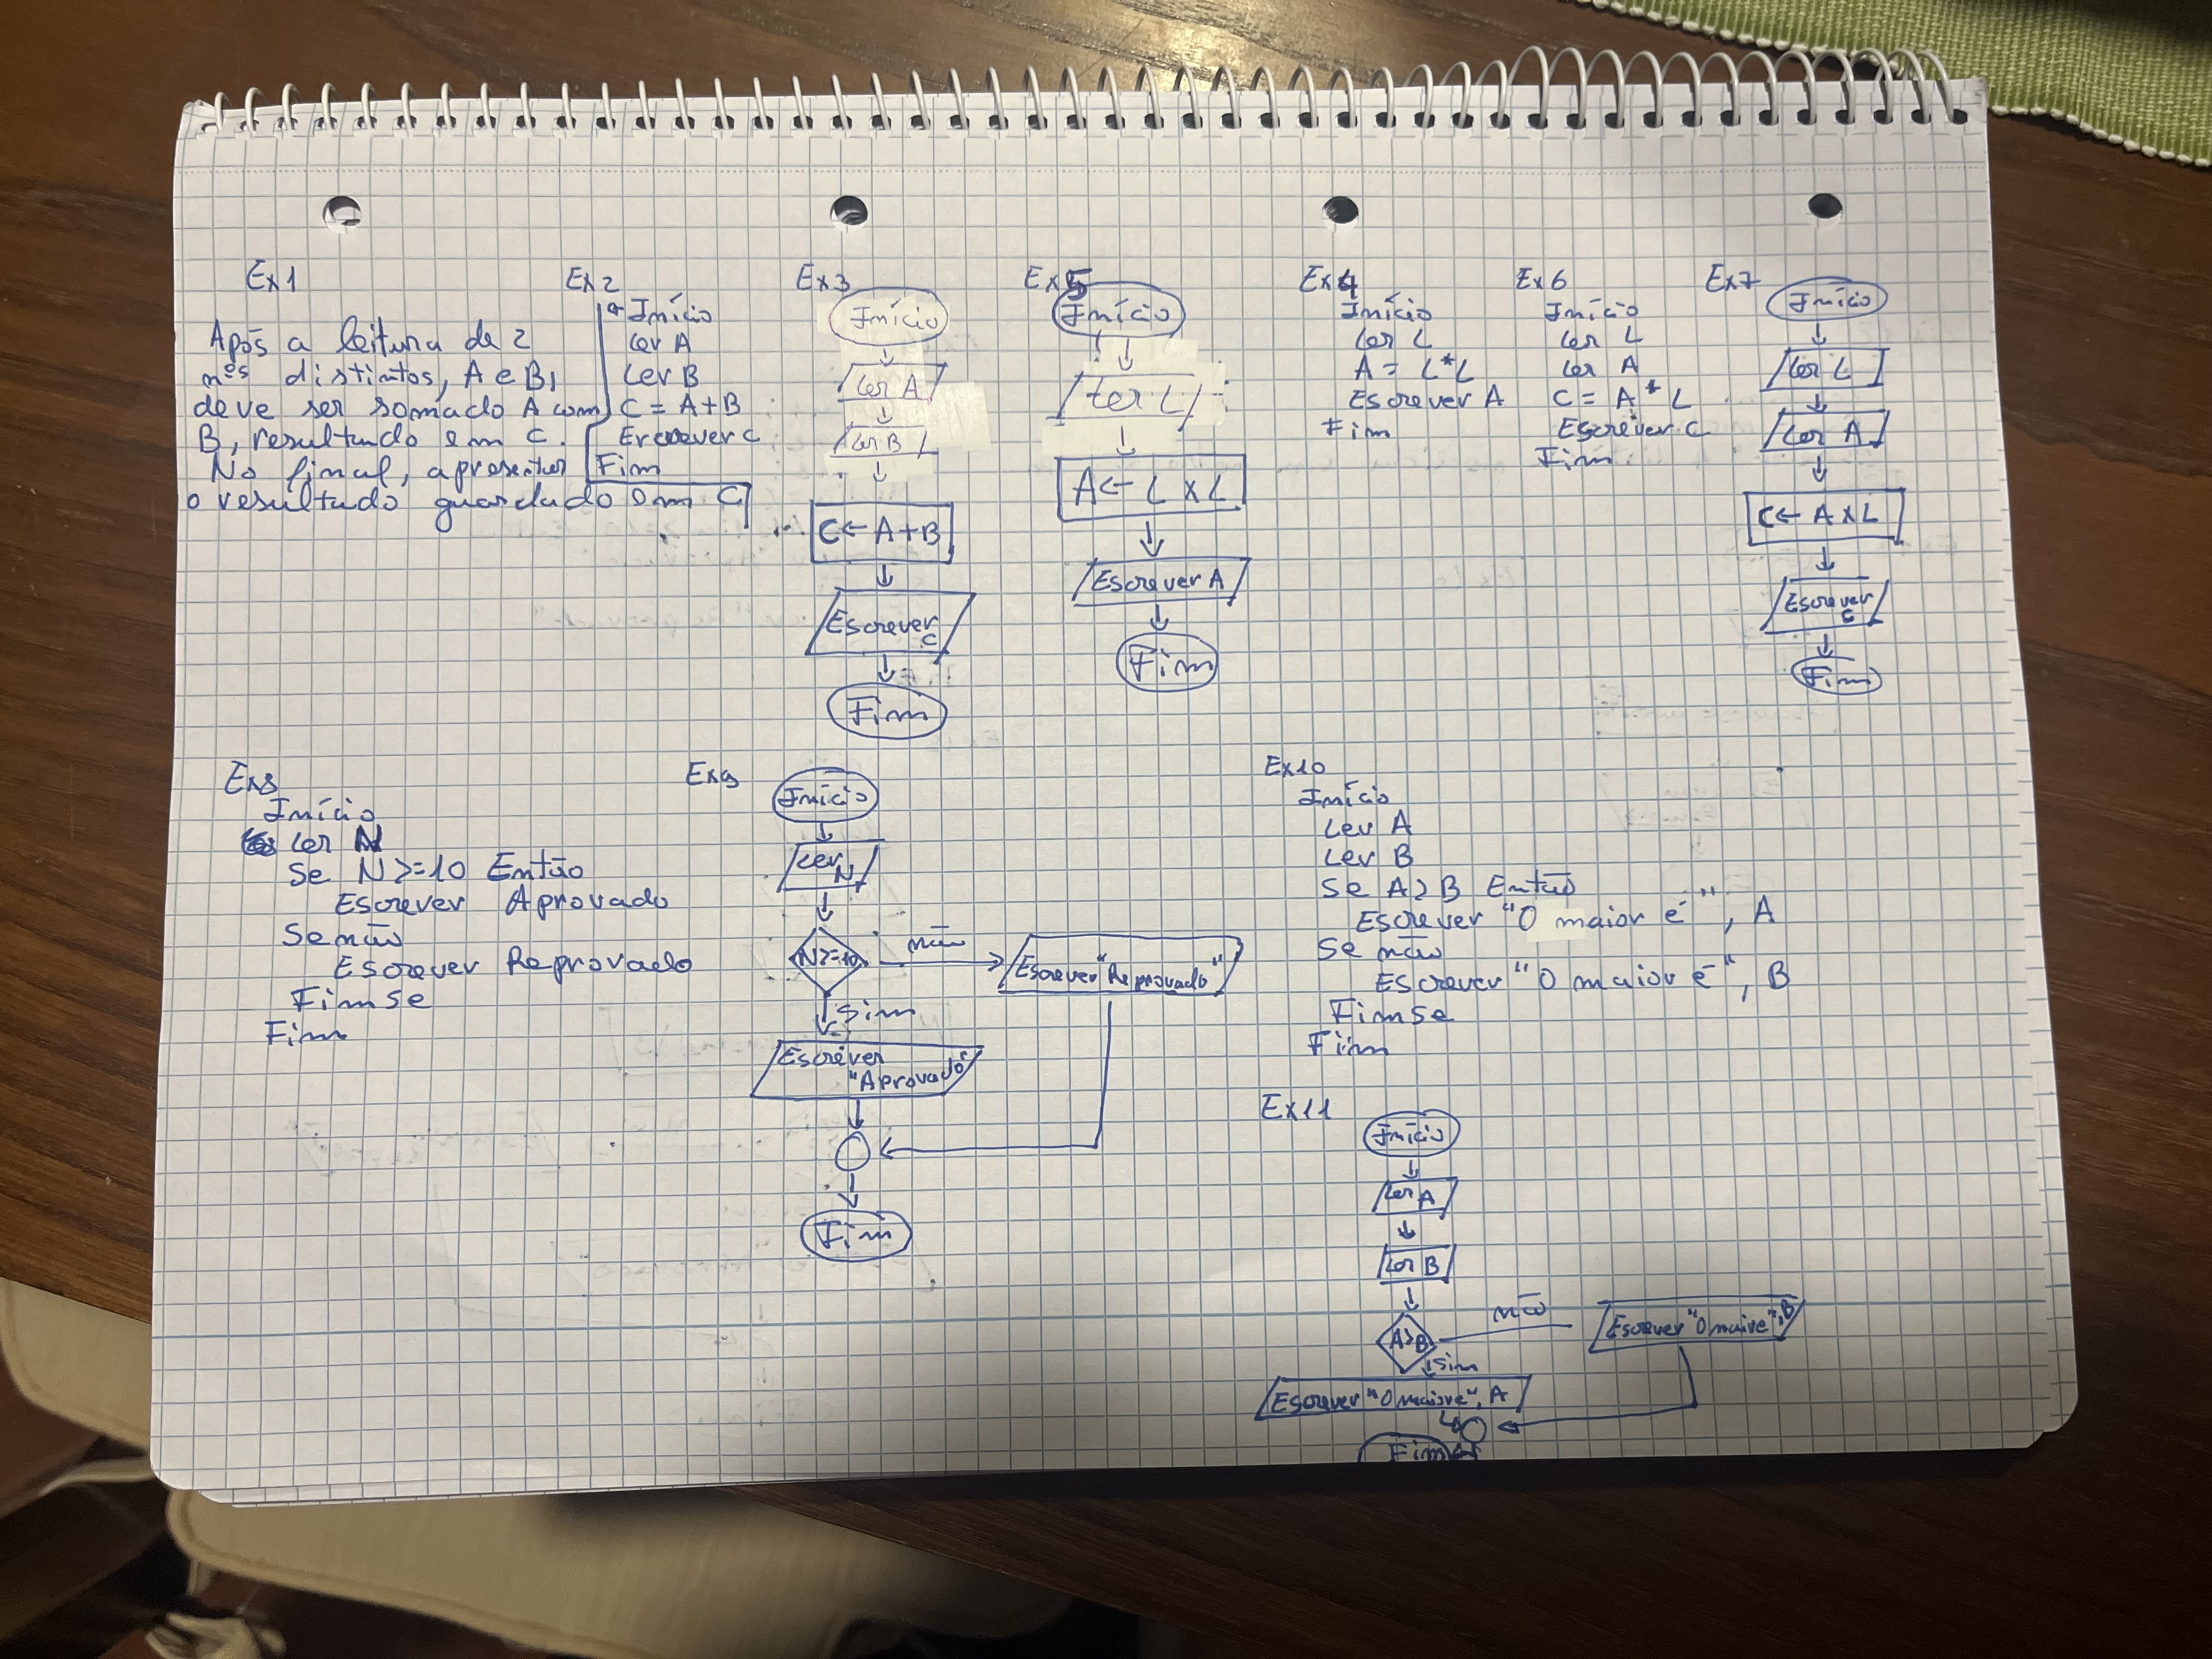 Ex1
Após a leitura de 2
nºs distintos, A e B,
deve ser somado A com
B, resultado em C.
No final, apresentar
o resultado guardado em C
Ex2
Início
Ler A
Ler B
C = A+B
Escrever C
Fim
Ex3
Início
Ler A
Ler B
C ← A+B
Escrever
C
Fim
Ex5
Início
Ler L
A ← L x L
Escrever A
Fim
Ex4
Início
Ler L
A = L*L
Escrever A
Fim
Ex6
Início
Ler L
Ler A
C = A * L
Escrever C
Fim
Ex7
Início
Ler L
Ler A
C ← A x L
Escrever
C
Fim
Ex8
Início
Ler N
Se N >=10 Então
Escrever Aprovado
Senão
Escrever Reprovado
Fim se
Fim
Ex9
Início
Ler
N
N>=10
não
Escrever "Reprovado"
Sim
Escrever
"Aprovado"
Fim
Ex10
Início
Ler A
Ler B
Se A > B Então
Escrever "O maior é", A
Senão
Escrever "O maior é", B
Fim se
Fim
Ex11
Início
Ler A
Ler B
A>B
não
Escrever "O maior é", B
sim
Escrever "O maior é", A
Fim